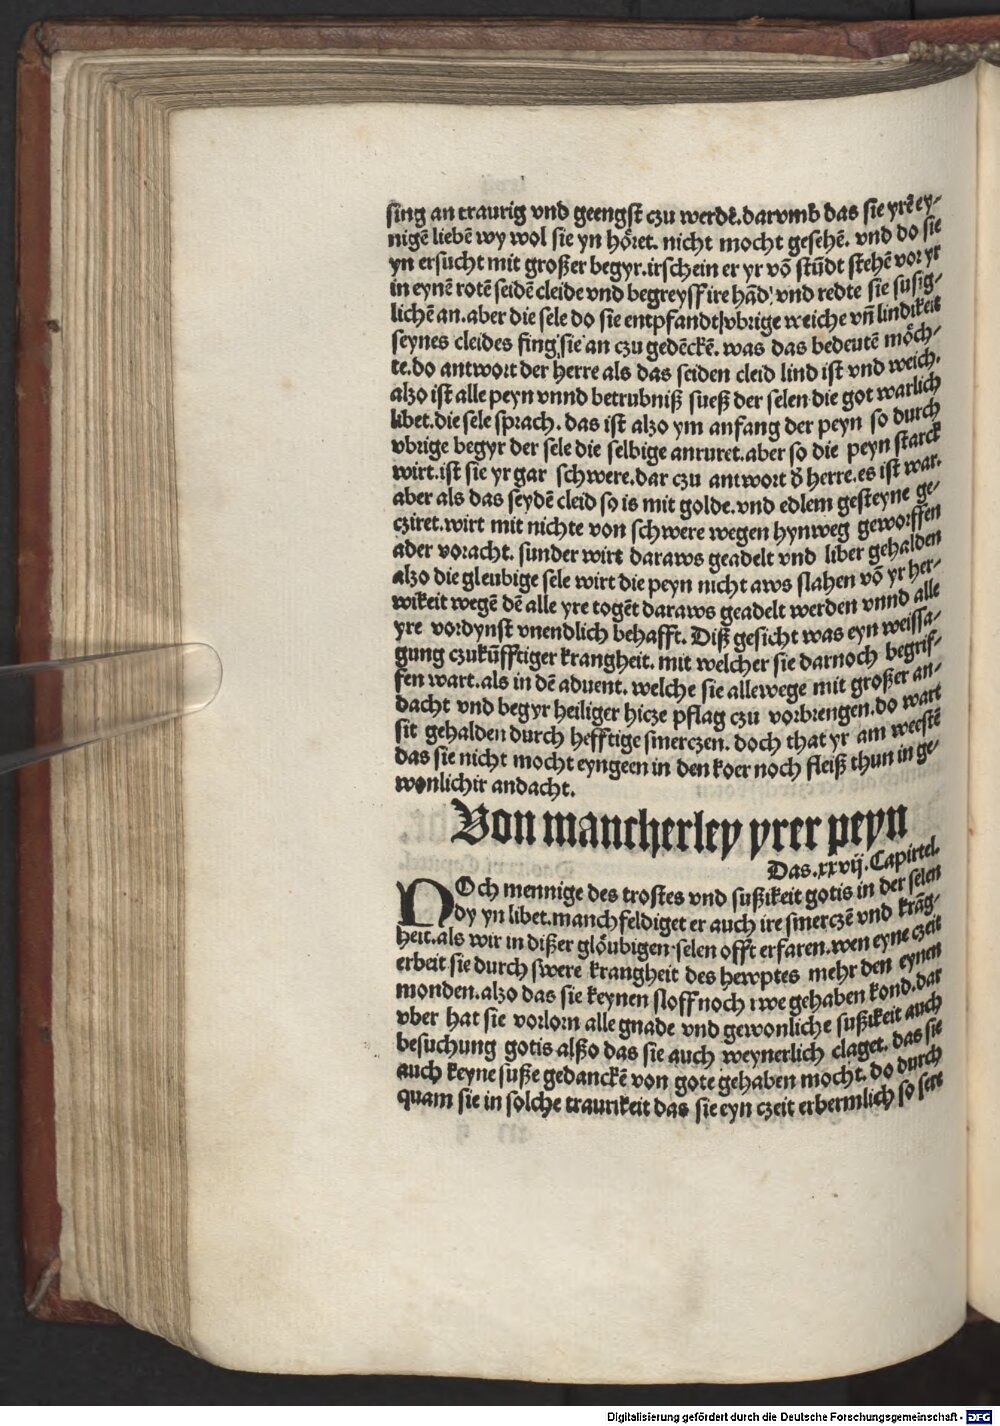 sing an traurig vnd geengst czu werdē. darvmb das sie yrē ey-
nigē liebē wy wol sie yn höret. nicht mocht gesehē. vnd do sie
yn ersucht mit großer begyr. irschein er yr vō stūdt stehē vor yr
in eynē rotē seidē cleide vnd begreyff ire hād, vnd redte sie susig-
lichē an. aber die sele do sie entpfandt vbrige weiche vn̄ lindikeit
seynes cleides fing sie an czu gedēckē. was das bedeutē möch-
te. do antwort der herre als das seiden cleid lind ist vnd weich.
alzo ist alle peyn vnnd betrubniß sueß der selen die got warlich
libet. die sele sprach. das ist alzo ym anfang der peyn so durch
vbrige begyr der sele die selbige anruret. aber so die peyn starck
wirt. ist sie yr gar schwere. dar czu antwort d' herre. es ist war.
aber als das seydē cleid so is mit golde. vnd edlem gesteyne ge-
cziret. wirt mit nichte von schwere wegen hynweg geworffen
ader voracht. sunder wirt daraws geadelt vnd liber gehalden
alzo die gleubige sele wirt die peyn nicht aws slahen vō yr her-
wikeit wegē dē alle yre togēt daraws geadelt werden vnnd alle
yre vordynst vnendlich behafft. Diß gesicht was eyn weissa-
gung czukūfftiger krangheit. mit welcher sie darnoch begrif-
fen wart. als in dē aduent. welche sie allewege mit großer an-
dacht vnd begyr heiliger hicze pflag czu vorbrengen. do wart
sit gehalden durch hefftige smerczen. doch that yr am weestē
das sie nicht mocht eyngeen in den koer noch fleiß thun in ge-
wonlichir andacht.
Von mancherley yrer peyn
Das. xxvij. Capittel.
NOch mennige des trostes vnd sußikeit gotis in der selen
dy yn libet. manchfeldiget er auch ire smerczē vnd krāg-
heit. als wir in dißer glöubigen selen offt erfaren. wen eyne czeit
erbeit sie durch swere krangheit des hewptes mehr den eynen
monden. alzo das sie keynen sloff noch rwe gehaben kond. dar
vber hat sie vorlorn alle gnade vnd gewonliche sußikeit auch
besuchung gotis alßo das sie auch weynerlich claget. das sie
auch keyne suße gedanckē von gote gehaben mocht. do durch
quam sie in solche traurikeit das sie eyn czeit erbermlich so sere
Digitalisierung gefördert durch die Deutsche Forschungsgemeinschaft - DFG